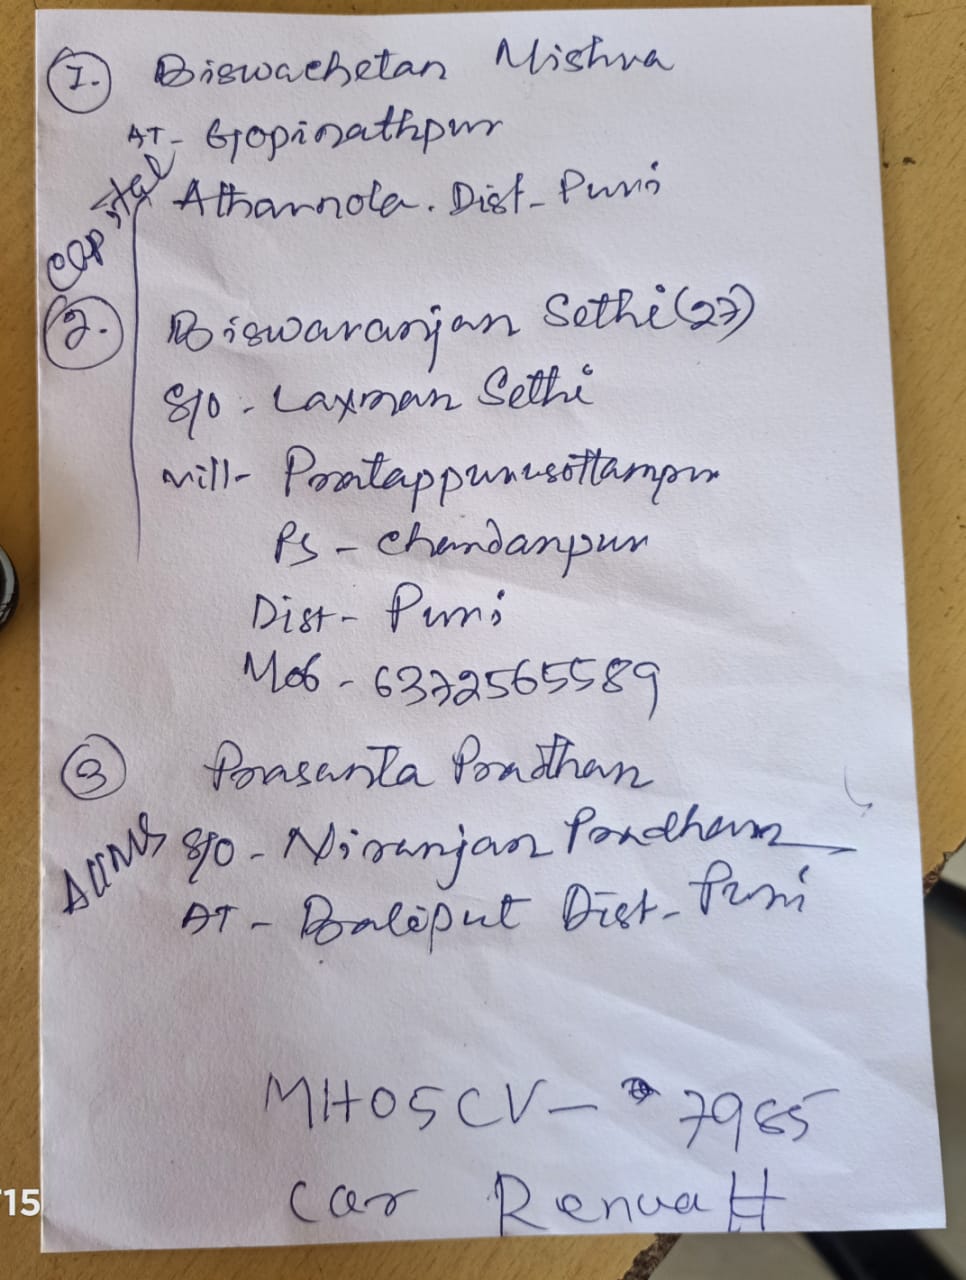 1. Biswachetan Mishra
AT- Gopinathpur
Capital
Atharnola. Dist- Puri
2. Biswaranjan Sethi (27)
S/o - Laxman Sethi
vill- Pratappurusottampur
Ps - Chandanpur
Dist- Puri
Mob - 6372565589
3 Prasanta Pradhan
AIIMS
S/o - Niranjan Pradhan
AT - Baliput Dist- Puri
MH05CV- 7985
Car RenuaH
15